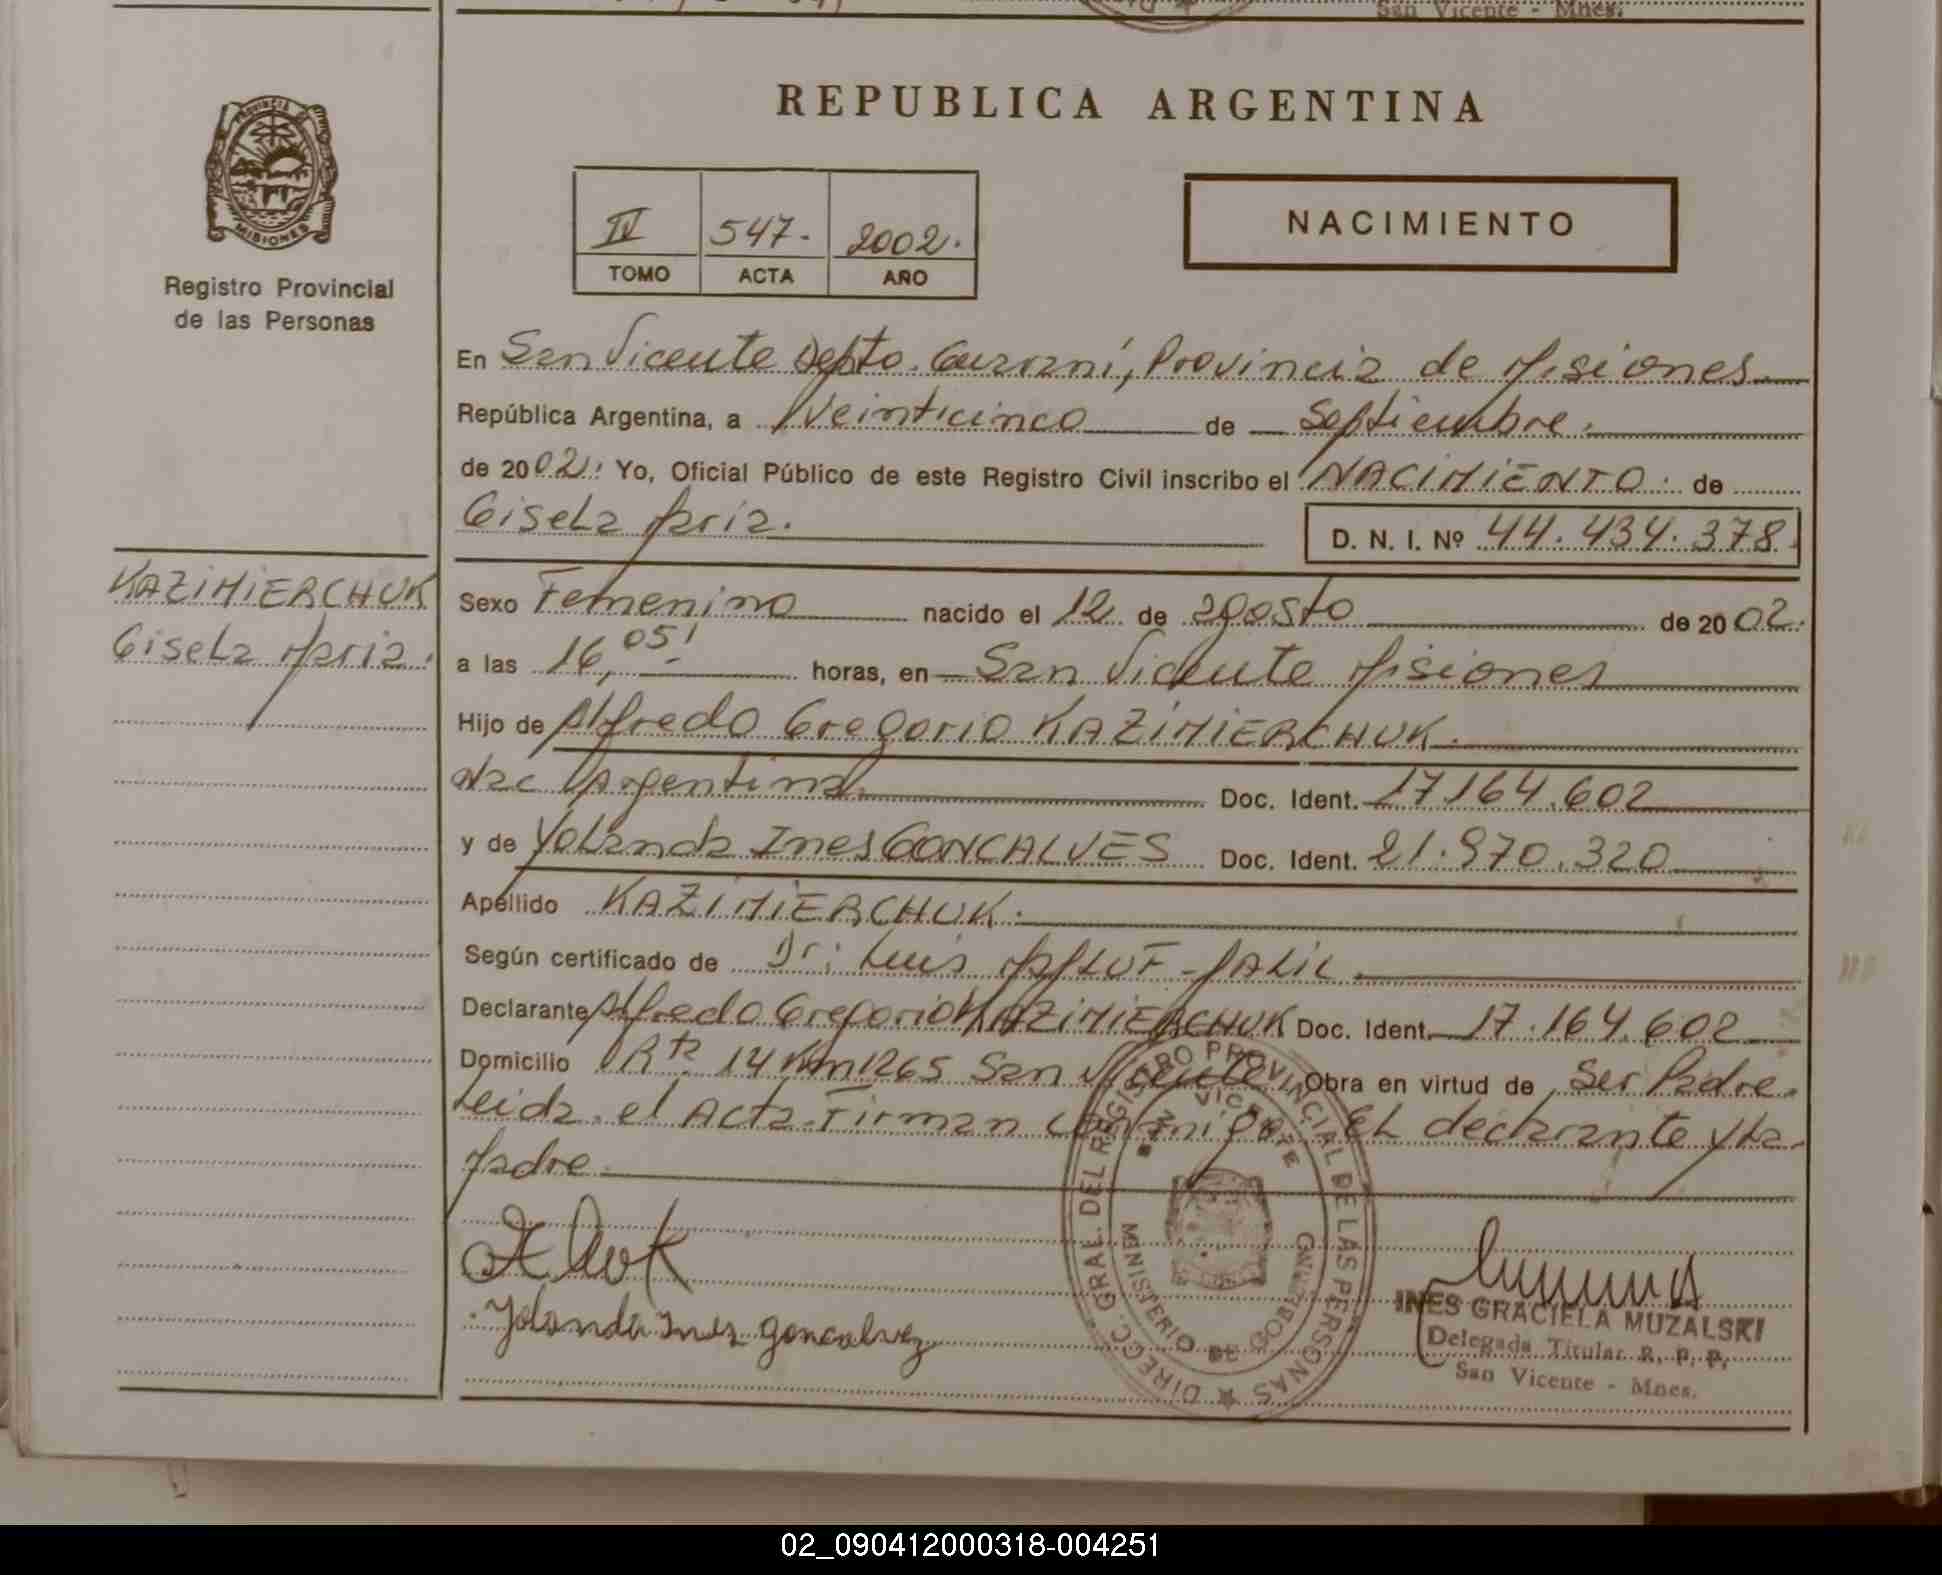 San Vicente - Mnes.
REPUBLICA ARGENTINA
PROVINCIA
MISIONES
Registro Provincial
de las Personas
IV 547. 2002.
TOMO ACTA AÑO
NACIMIENTO
En San Vicente Depto. Guaraní, Provincia de Misiones
República Argentina, a Veinticinco de Septiembre.
de 2002. Yo, Oficial Público de este Registro Civil inscribo el NACIMIENTO. de
Gisela Maria.
D. N. I. Nº 44.434.378.
KAZIMIERCHUK
Gisela Maria.
Sexo Femenino nacido el 12 de agosto de 2002.
a las 16,05' horas, en San Vicente Misiones
Hijo de Alfredo Gregorio KAZIMIERCHUK.
Nac Argentina Doc. Ident. 17.164.602
y de Yolanda Ines GONCALVES Doc. Ident. 21.970.320
Apellido KAZIMIERCHUK.
Según certificado de Dr: Luis MALUF-JALIL
Declarante Alfredo Gregorio KAZIMIERCHUK Doc. Ident. 17.164.602
Domicilio Rta. 14 Km 1265 San Vicente Obra en virtud de Ser Padre.
Leida el Acta Firman Conmigo. El declarante y La
Madre.
Yolanda Ines Goncalvez
DIRECC. GRAL. DEL REGISTRO PROVINCIAL DE LAS PERSONAS
VICENTE
MINISTERIO DE GOBIERNO
INES GRACIELA MUZALSKI
Delegada Titular R. P. P.
San Vicente - Mnes.
02_090412000318-004251